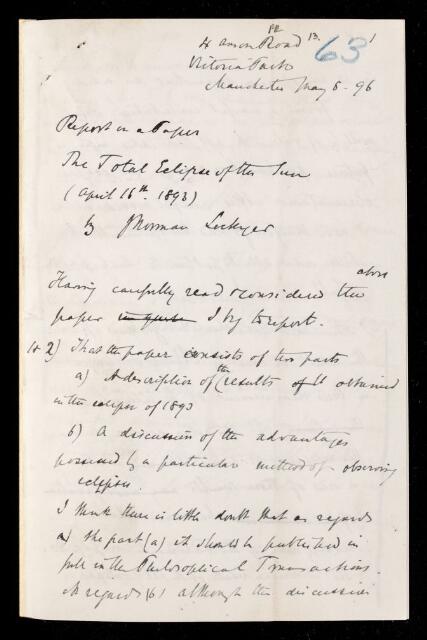 4 Anson Road
PR 13. 63 1
Victoria Park
Manchester May 8 - 96
Report on a Paper
The Total Eclipse of the Sun
(April 16th. 1893)
by J Norman Lockyer
above
Having carefully read & considered the
paper I beg to report.
1 & 2) That the paper consists of two parts
a) A description of the results obtained
in the eclipse of 1893
b) A discussion of the advantages
possessed by a particular method of observing
eclipses.
I think there is little doubt that as regards
the part (a) it should be published in
full in the Philosophical Transactions.
As regards (b) although the discussion